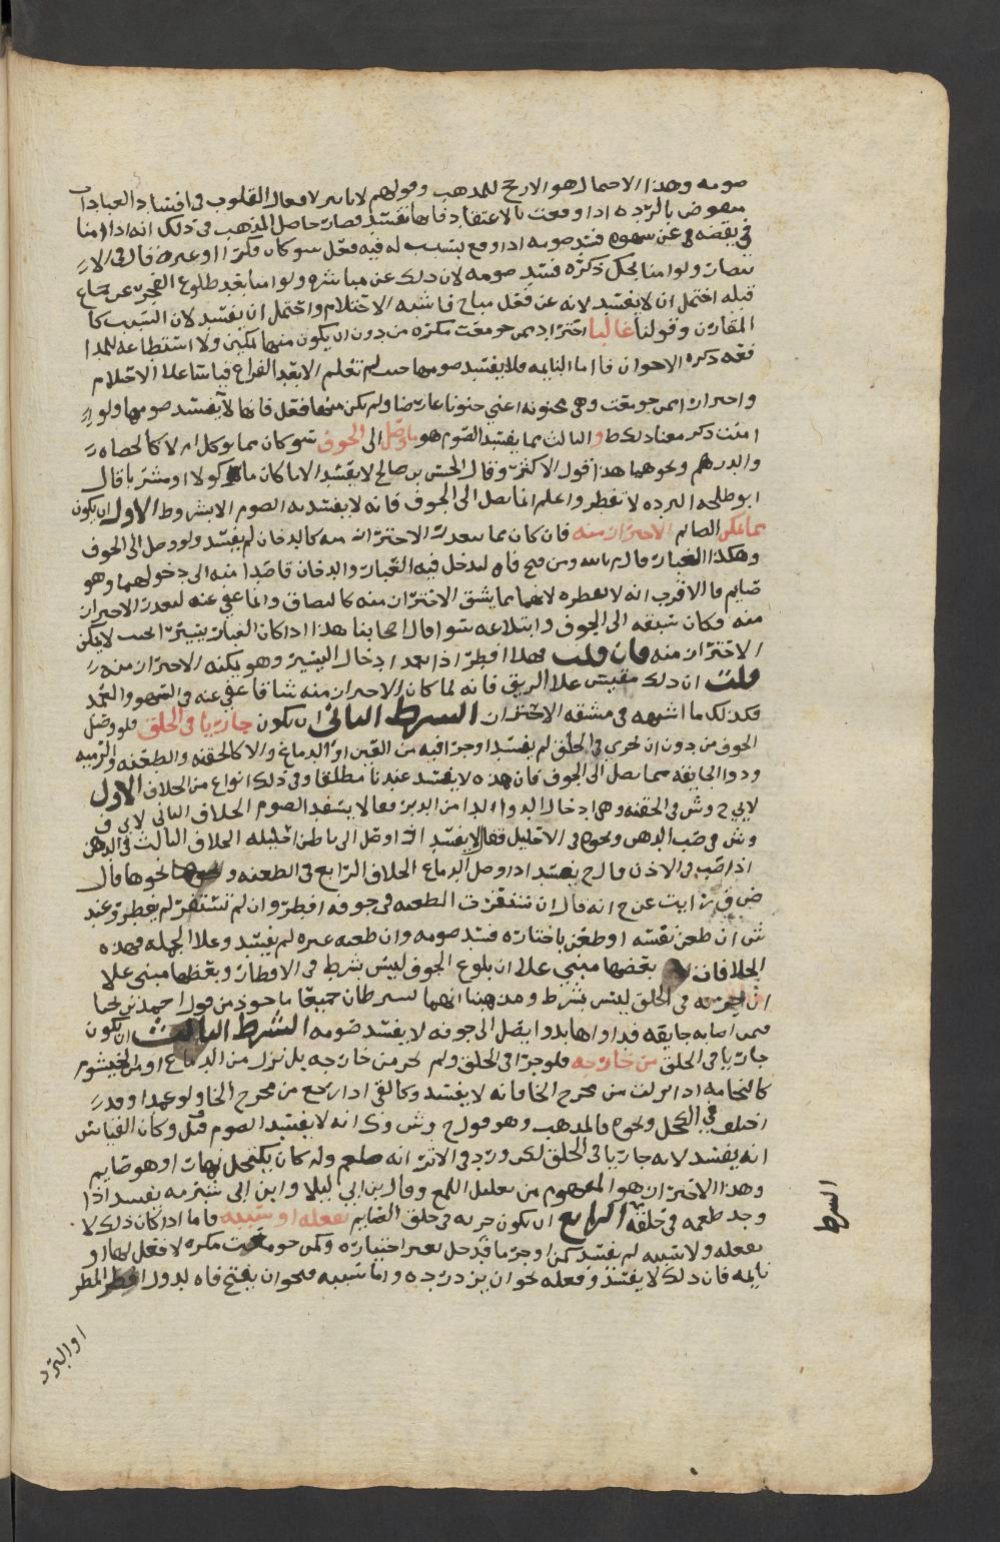 صومه وهذا الاحتمال هو الارجح للمذهب وقولهم لا تاثير لافعال القلوب في افساد العبادات
منقوض بالردة اذا وقعت بالاعتقاد فانها تفسد فصار حاصل المذهب في ذلك انه اذا امنا
في يقضه عن سهوه فسد صومه اذا وقع بسبب له فيه فعل سوى كان فكرا او غيره قال في الار
بصار ولو امنا بحكل ذكره فسد صومه لان ذلك عن مباشره ولو امنا بعد طلوع الفجر عن جماع
قبله احتمل ان لا يفسد لانه عن فعل مباح فاشبه الاحتلام واحتمل ان يفسد لان السبب كا
المقارن وقولنا غالبا احترازا ممن جومعت مكرهه من دون ان يكون منها تمكين ولا استطاعه للمدا
فعه ذكره الاخوان فاما النايمه فلا يفسد صومها حيث لم تعلم الا بعد الفراغ قياسا علا الاحتلام
واحتراز ممن جومعت وهي مجنونه اعني جنونا عارضا ولم يكن منها فعل فانها لا يفسد صومها ولو ا
امنت ذكر معنا ذلك ط والثالث مما يفسد الصوم هو ما وصل الى الجوف سوى كان مما يوكل ام لا كالحصاه ر
والدرهم ونحوهما هذا قول الاكثر وقال الحسن بن صالح لا يفسد الا ما كان ماكولا او مشربا قال
ابو طلحه البرده لا تفطر واعلم انما يصل الى الجوف فانه لا يفسد به الصوم الا بشروط الاول ان يكون
مما يمكن الصايم الاحتراز منه فان كان مما يتعذر الاحتراز منه كالدخان لم يفسد ولو وصل الى الجوف
وهكذا الغبار قال م بالله ومن فتح فاه ليدخل فيه الغبار والدخان قاصدا منه الى دخولهما وهو
صايم فالاقرب انه لا يفطره لانهما مما يشق الاحتراز منه كالبصاق وانما عفي عنه لتعذر الاحتراز
منه فكان سبقه الى الجوف وابتلاعه سوا قال اصحابنا هذا اذا كان الغبار يسيرا بحيث لا يمكن
الاحتراز منه فان قلت فهلا افطر اذا تعمد ادخال اليسير وهو يمكنه الاحتراز منه ر
قلت ان ذلك مقيس علا الريق فانه لما كان الاحتراز منه شاقا عفي عنه في السهو والعمد
فكذلك ما اشبهه في مشقه الاحتراز الشرط الثاني ان يكون جاريا في الحلق فلو وصل
الجوف من دون ان يجري في الحلق لم يفسد اوجرا فيه من العين او الدماغ والا كالحقنه والطعنه والرميه
ودوا الجايفه مما يصل الى الجوف فان هذه لا يفسد عندنا مطلقا وفي ذلك انواع من الخلاف الاول
لابي ح وش في الحقنه وهي ادخال الدوا البدا من الدبر فقالا يفسد الصوم الخلاف الثاني لابي ف
وش في صب الدهن ونحوه في الاحليل فقالا يفسد اذا وصل الى باطن احليله الخلاف الثالث في الدهن
اذا صب في الاذن قال ح يفسد اذا وصل الدماغ الخلاف الرابع في الطعنه ونحوها قال
ض في زايت عن ح انه قال ان استقرت الطعنه في جوفه افطر وان لم تستقر لم يفطر وعند
ش ان طعن نفسه او طعن باختاره فسد صومه وان طعنه غيره لم يفسد وعلا الجمله فهذه
الخلافات بعضها مبني علا ان بلوغ الجوف ليس بشرط في الافطار وبعضها مبني علا
ان الجري في الحلق ليس بشرط ومذهبنا انهما يشرطان جميعا ماخوذ من قول احمد بن يحيا
فيمن اصابه جايفه فداواها بدوا يصل الى جوفه لا يفسد صومه الشرط الثالث ان يكون
جاريا في الحلق من خارجه فلو جرا في الحلق ولم يجر من خارجه بل نزل من الدماغ او من الخيشوم
كالنخامه اذا نزلت من مخرج الخا فانه لا يفسد وكالقي اذا رجع من مخرج الخا ولو عمدا وقد ر
اختلف في الكحل ونحوه فالمذهب وهو قول ح وش وك انه لا يفسد الصوم قيل وكان القياس
انه يفسد لانه جاريا في الحلق لكن ورد في الاثر انه صلعم ولم كان يكتحل نهارا وهو صايم
وهذا الاحتراز هو المفهوم من تعليل اللمع وقال بن ابي ليلا وابن ابي شبرمه يفسد اذا
وجد طعمه في حلقه الرابع ان يكون جريه في حلق الصايم بفعله او سببه فاما اذا كان ذلك لا
بفعله ولا سببه لم يفسد كمن اوجر ما فدخل بغير اختياره وكمن جومعت مكرهه لا فعل لها او
نايمه فان ذلك لا يفسد وفعله نحو ان يزدرده واما سببه فنحو ان يفتح فاه لدول المطر
او البرد
الشرط